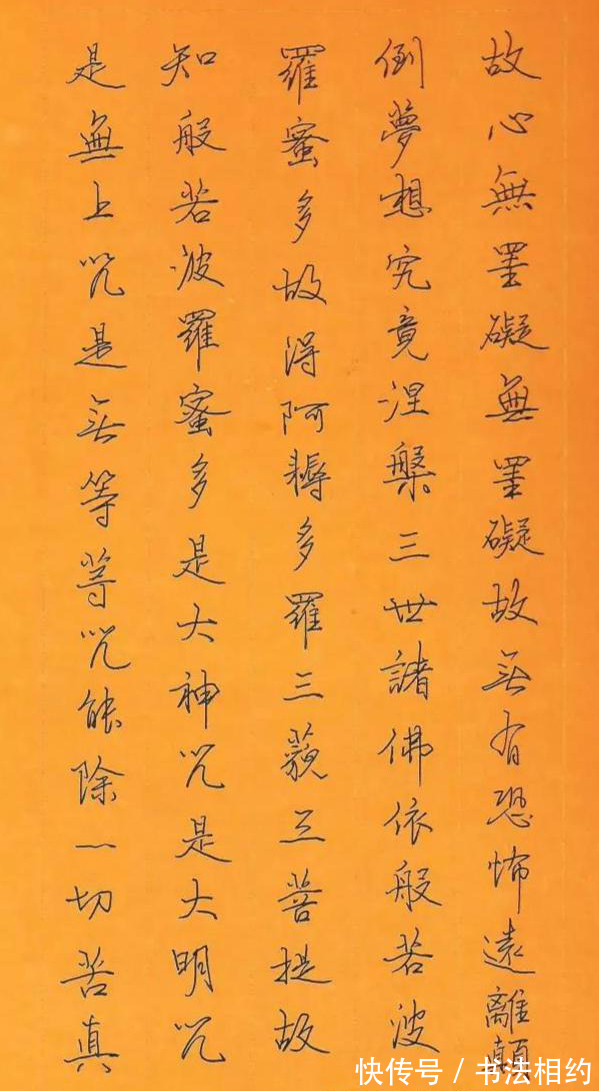 故心無罣礙無罣礙故無有恐怖遠離顛
倒夢想究竟涅槃三世諸佛依般若波
羅蜜多故得阿耨多羅三藐三菩提故
知般若波羅蜜多是大神咒是大明咒
是無上咒是無等等咒能除一切苦真
快传号 / 书法相约